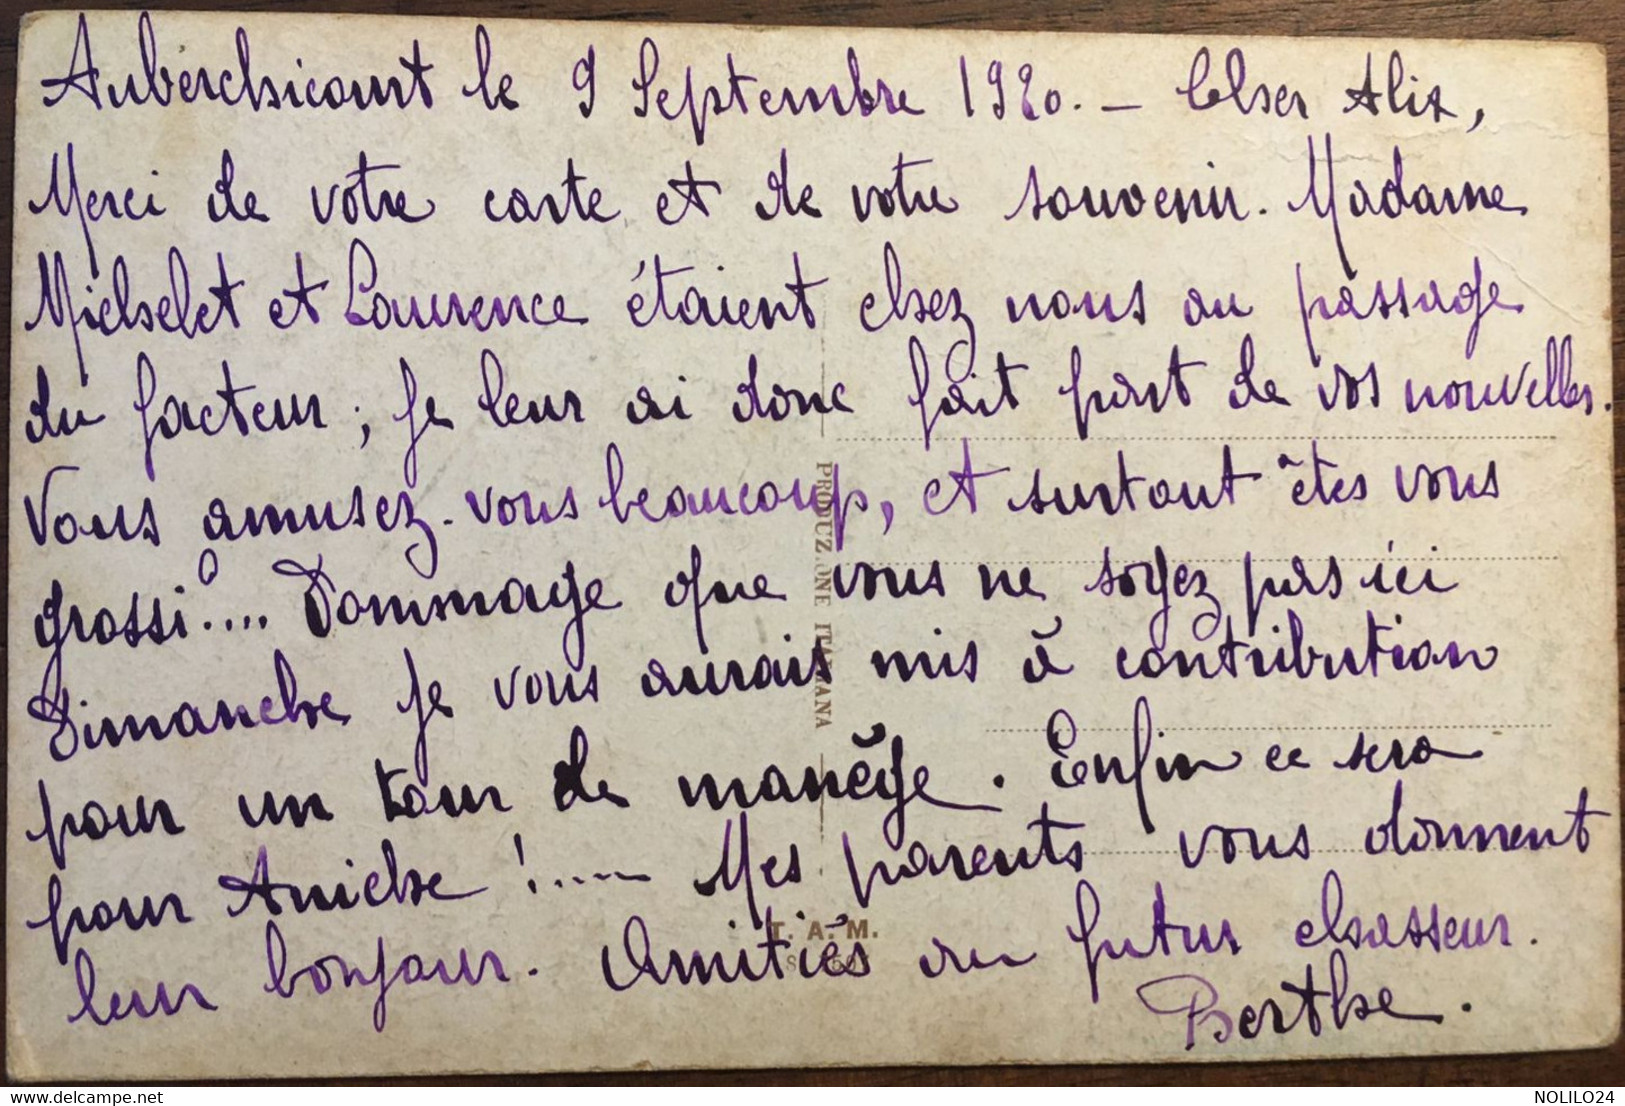 Auberchicourt le 9 Septembre 1920. - Cher Alix,
Merci de votre carte et de votre souvenir. Madame
Michelet et Laurence étaient chez nous au passage
du facteur ; je leur ai donc fait part de vos nouvelles.
Vous amusez-vous beaucoup, et surtout êtes vous
grossi ?.... Dommage que vous ne soyez pas ici
Dimanche je vous aurais mis à contribution
pour un tour de manège. Enfin ce sera
pour Aniche !..... Mes parents vous donnent
leur bonjour. Amitiés au futur chasseur.
Berthe.
PRODUZIONE ITALIANA
T. A. M.
delcampe.net
NOLILO24